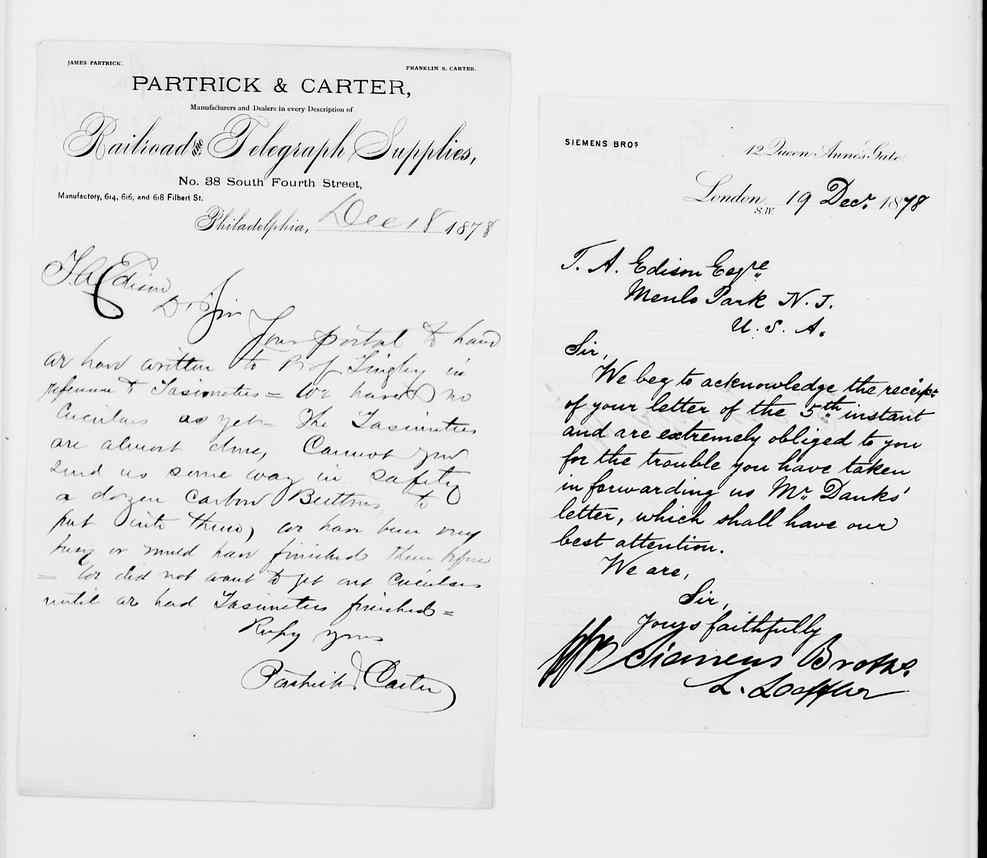 JAMES PARTRICK.
FRANKLIN S. CARTER.
PARTRICK & CARTER,
Manufacturers and Dealers in every Description of
Railroad and Telegraph Supplies,
No. 38 South Fourth Street,
Manufactory, 614, 616, and 618 Filbert St.
Philadelphia, Dec 18 1878
T A Edison
Dr Sir
Your postal to hand
we have written to Prof Langley in
reference to Tasimeters = We have no
Circulars as yet - The Tasimeters
are almost done, Cannot you
send us some way in safety
a dozen Carbon Buttons to
put into them, we have been very
busy or would have finished them before
= We did not want to get out Circulars
until we had Tasimeters finished =
Respy yours
Partrick & Carter
SIEMENS BROS
12 Queen Anne's Gate
London S.W. 19 Decr. 1878
T. A. Edison Esqre
Menlo Park N. J.
U. S. A.
Sir,
We beg to acknowledge the receipt
of your letter of the 5th instant
and are extremely obliged to you
for the trouble you have taken
in forwarding us Mr. Danks'
letter, which shall have our
best attention.
We are,
Sir,
Yours faithfully
Siemens Brothers
L. Loeffler